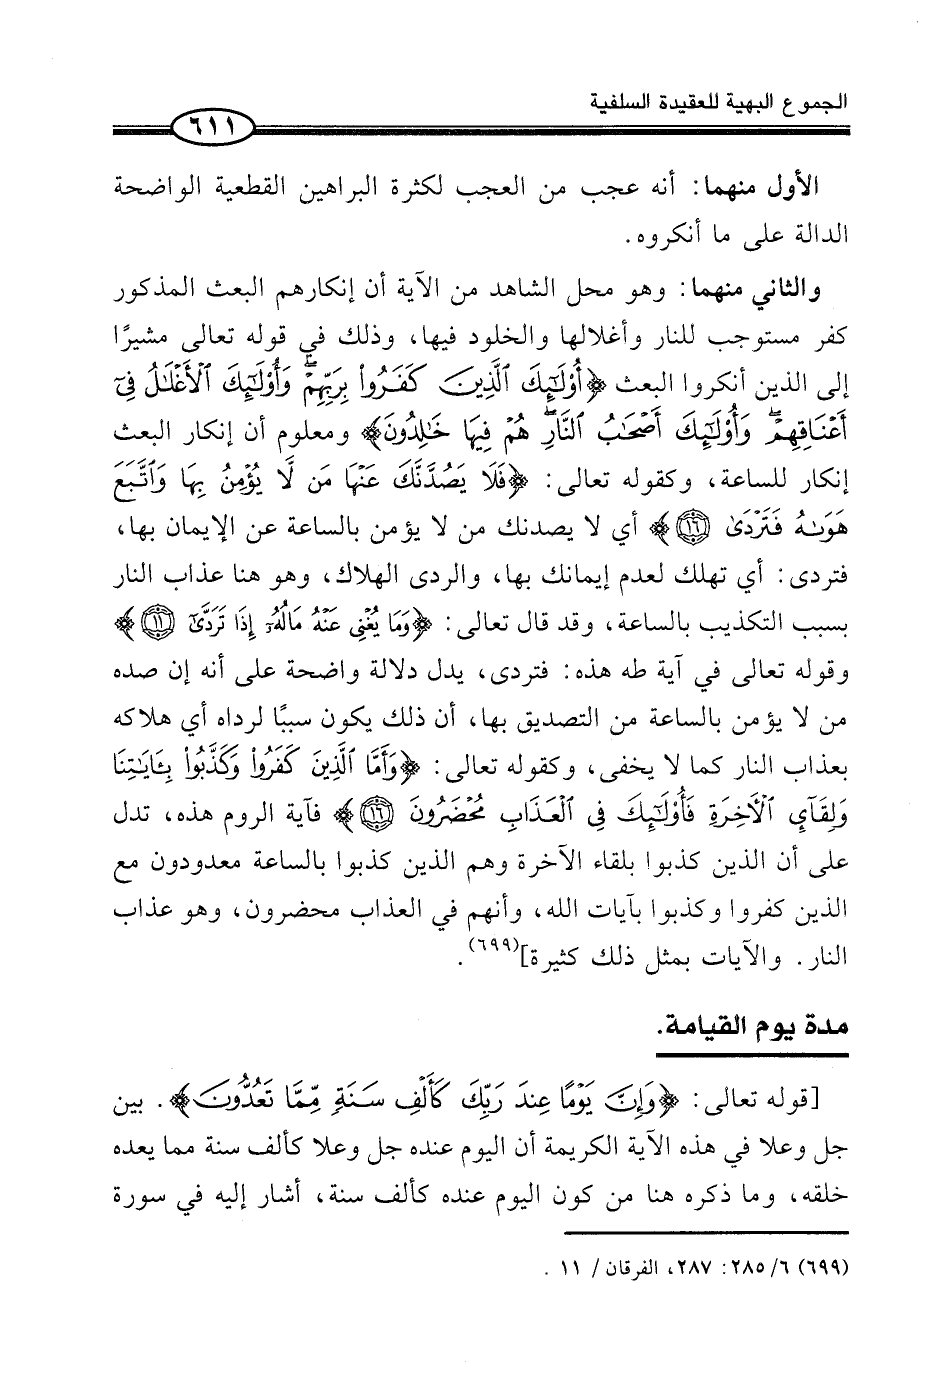 الجموع البهية للعقيدة السلفية
٦١١
الأول منهما: أنه عجب من العجب لكثرة البراهين القطعية الواضحة
الدالة على ما أنكروه.
والثاني منهما: وهو محل الشاهد من الآية أن إنكارهم البعث المذكور
كفر مستوجب للنار وأغلالها والخلود فيها، وذلك في قوله تعالى مشيرًا
إلى الذين أنكروا البعث ﴿أُوْلَٰٓئِكَ ٱلَّذِينَ كَفَرُواْ بِرَبِّهِمۡۖ وَأُوْلَٰٓئِكَ ٱلۡأَغۡلَٰلُ فِيٓ
أَعۡنَاقِهِمۡۖ وَأُوْلَٰٓئِكَ أَصۡحَٰبُ ٱلنَّارِۖ هُمۡ فِيهَا خَٰلِدُونَ﴾ ومعلوم أن إنكار البعث
إنكار للساعة، وكقوله تعالى: ﴿فَلَا يَصُدَّنَّكَ عَنۡهَا مَن لَّا يُؤۡمِنُ بِهَا وَٱتَّبَعَ
هَوَىٰهُ فَتَرۡدَىٰ ١٦﴾ أي لا يصدنك من لا يؤمن بالساعة عن الإيمان بها،
فتردى: أي تهلك لعدم إيمانك بها، والردى الهلاك، وهو هنا عذاب النار
بسبب التكذيب بالساعة، وقد قال تعالى: ﴿وَمَا يُغۡنِي عَنۡهُ مَالُهُۥٓ إِذَا تَرَدَّىٰٓ ١١﴾
وقوله تعالى في آية طه هذه: فتردى، يدل دلالة واضحة على أنه إن صده
من لا يؤمن بالساعة من التصديق بها، أن ذلك يكون سببًا لرداه أي هلاكه
بعذاب النار كما لا يخفى، وكقوله تعالى: ﴿وَأَمَّا ٱلَّذِينَ كَفَرُواْ وَكَذَّبُواْ بِـَٔايَٰتِنَا
وَلِقَآيِٕ ٱلۡأٓخِرَةِ فَأُوْلَٰٓئِكَ فِي ٱلۡعَذَابِ مُحۡضَرُونَ ١٦﴾ فآية الروم هذه، تدل
على أن الذين كذبوا بلقاء الآخرة وهم الذين كذبوا بالساعة معدودون مع
الذين كفروا وكذبوا بآيات الله، وأنهم في العذاب محضرون، وهو عذاب
النار. والآيات بمثل ذلك كثيرة](٦٩٩).
مدة يوم القيامة.
[قوله تعالى: ﴿وَإِنَّ يَوۡمًا عِندَ رَبِّكَ كَأَلۡفِ سَنَةٖ مِّمَّا تَعُدُّونَ﴾. بين
جل وعلا في هذه الآية الكريمة أن اليوم عنده جل وعلا كألف سنة مما يعده
خلقه، وما ذكره هنا من كون اليوم عنده كألف سنة، أشار إليه في سورة
(٦٩٩) ٦/ ٢٨٥: ٢٨٧، الفرقان/ ١١ .